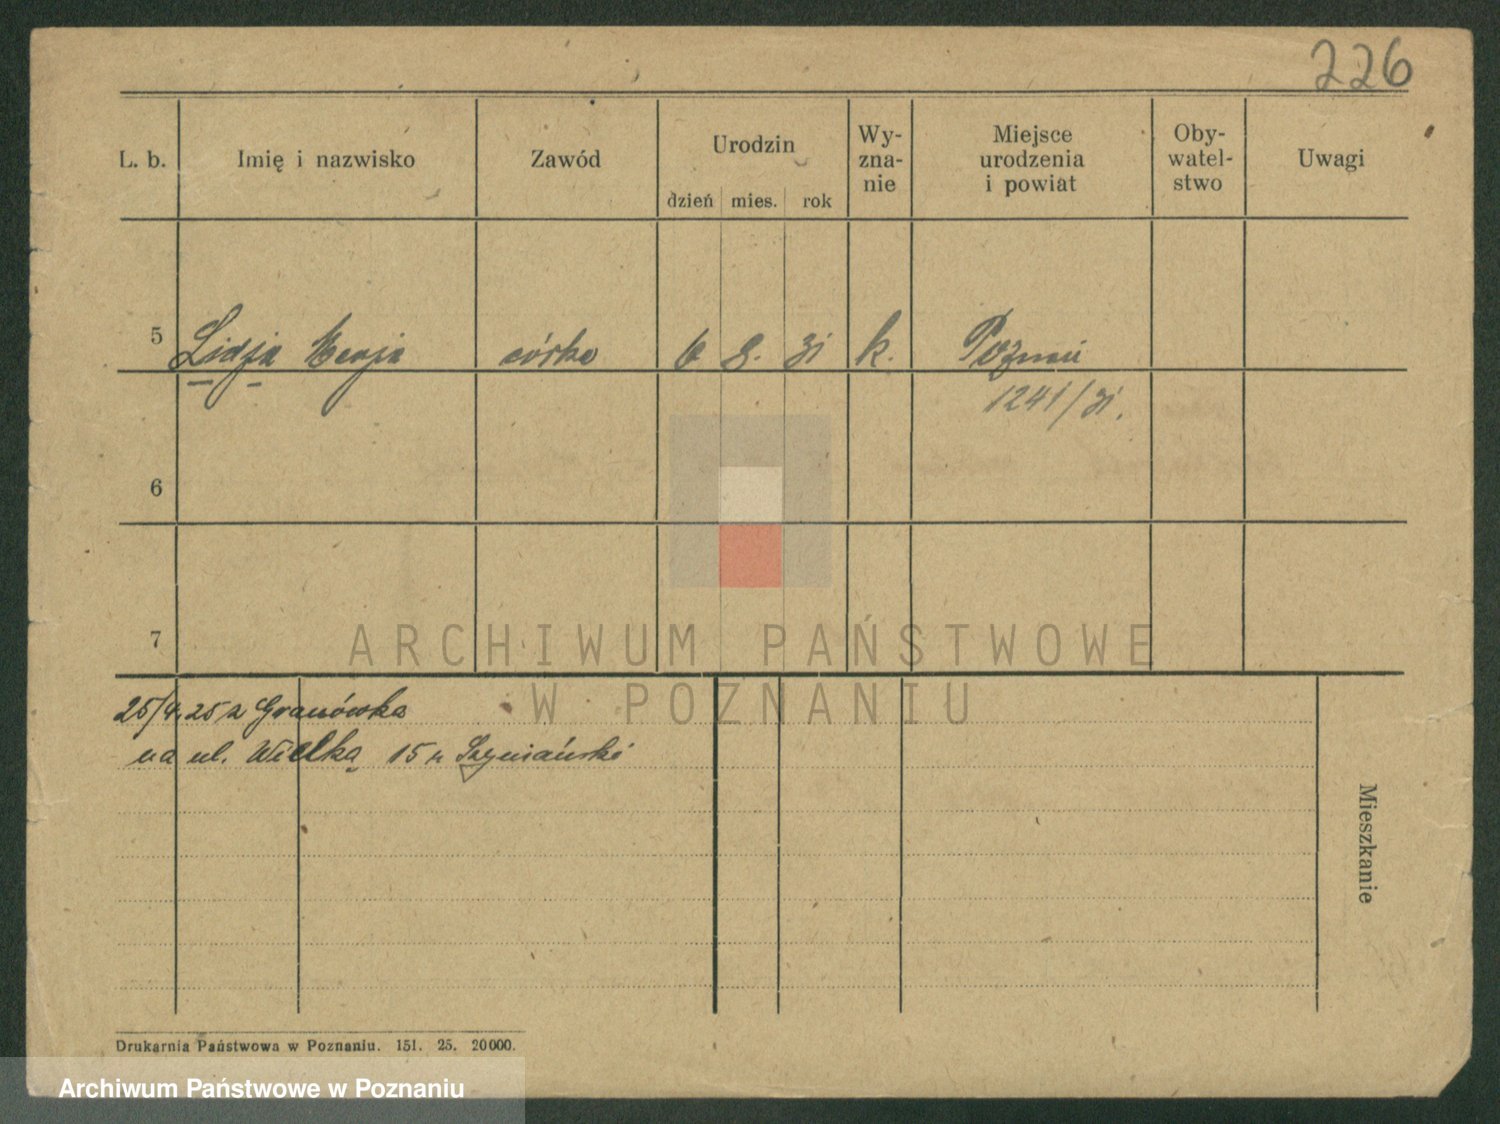 226
L. b. Imię i nazwisko Zawód Urodzin Wy-
zna-
nie Miejsce
urodzenia
i powiat Oby-
watel-
stwo Uwagi
dzień mies. rok
5 Lidja Marja córka 6 8. 31 k. Poznań
1241/31.
6
7
25/4. 25 z Granówka
na ul. Wielką 15 u Szymański
Mieszkanie
Drukarnia Państwowa w Poznaniu. 151. 25. 20000.
ARCHIWUM PAŃSTWOWE
W POZNANIU
Archiwum Państwowe w Poznaniu